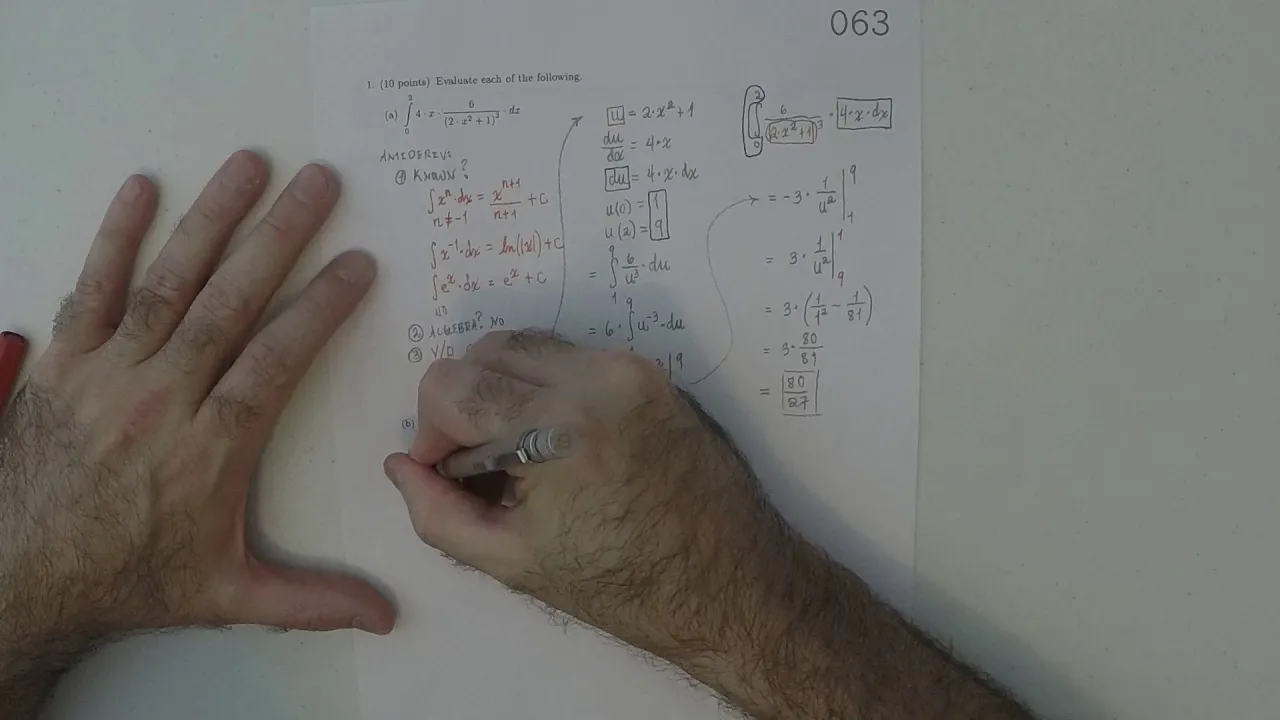 063
1. (10 points) Evaluate each of the following.
(a) ∫₀² 4 · x · 6/(2 · x² + 1)³ · dx
① KNOWN?
∫xⁿ·dx = xⁿ⁺¹/n+1 + C
n ≠ -1
∫x⁻¹·dx = ln(|x|) + C
∫eˣ·dx = eˣ + C
NO
② ALGEBRA? NO
③ V/D
(b)
u = 2·x² + 1
du/dx = 4·x
du = 4·x·dx
u(0) = 1
u(2) = 9
= ∫₁⁹ 6/u³ · du
= 6 · ∫₁⁹ u⁻³ · du
∫₀² 6/(2·x²+1)³ · 4·x·dx
= -3 · 1/u² |₁⁹
= 3 · 1/u² |₉¹
= 3 · (1/1² - 1/81)
= 3 · 80/81
= 80/27